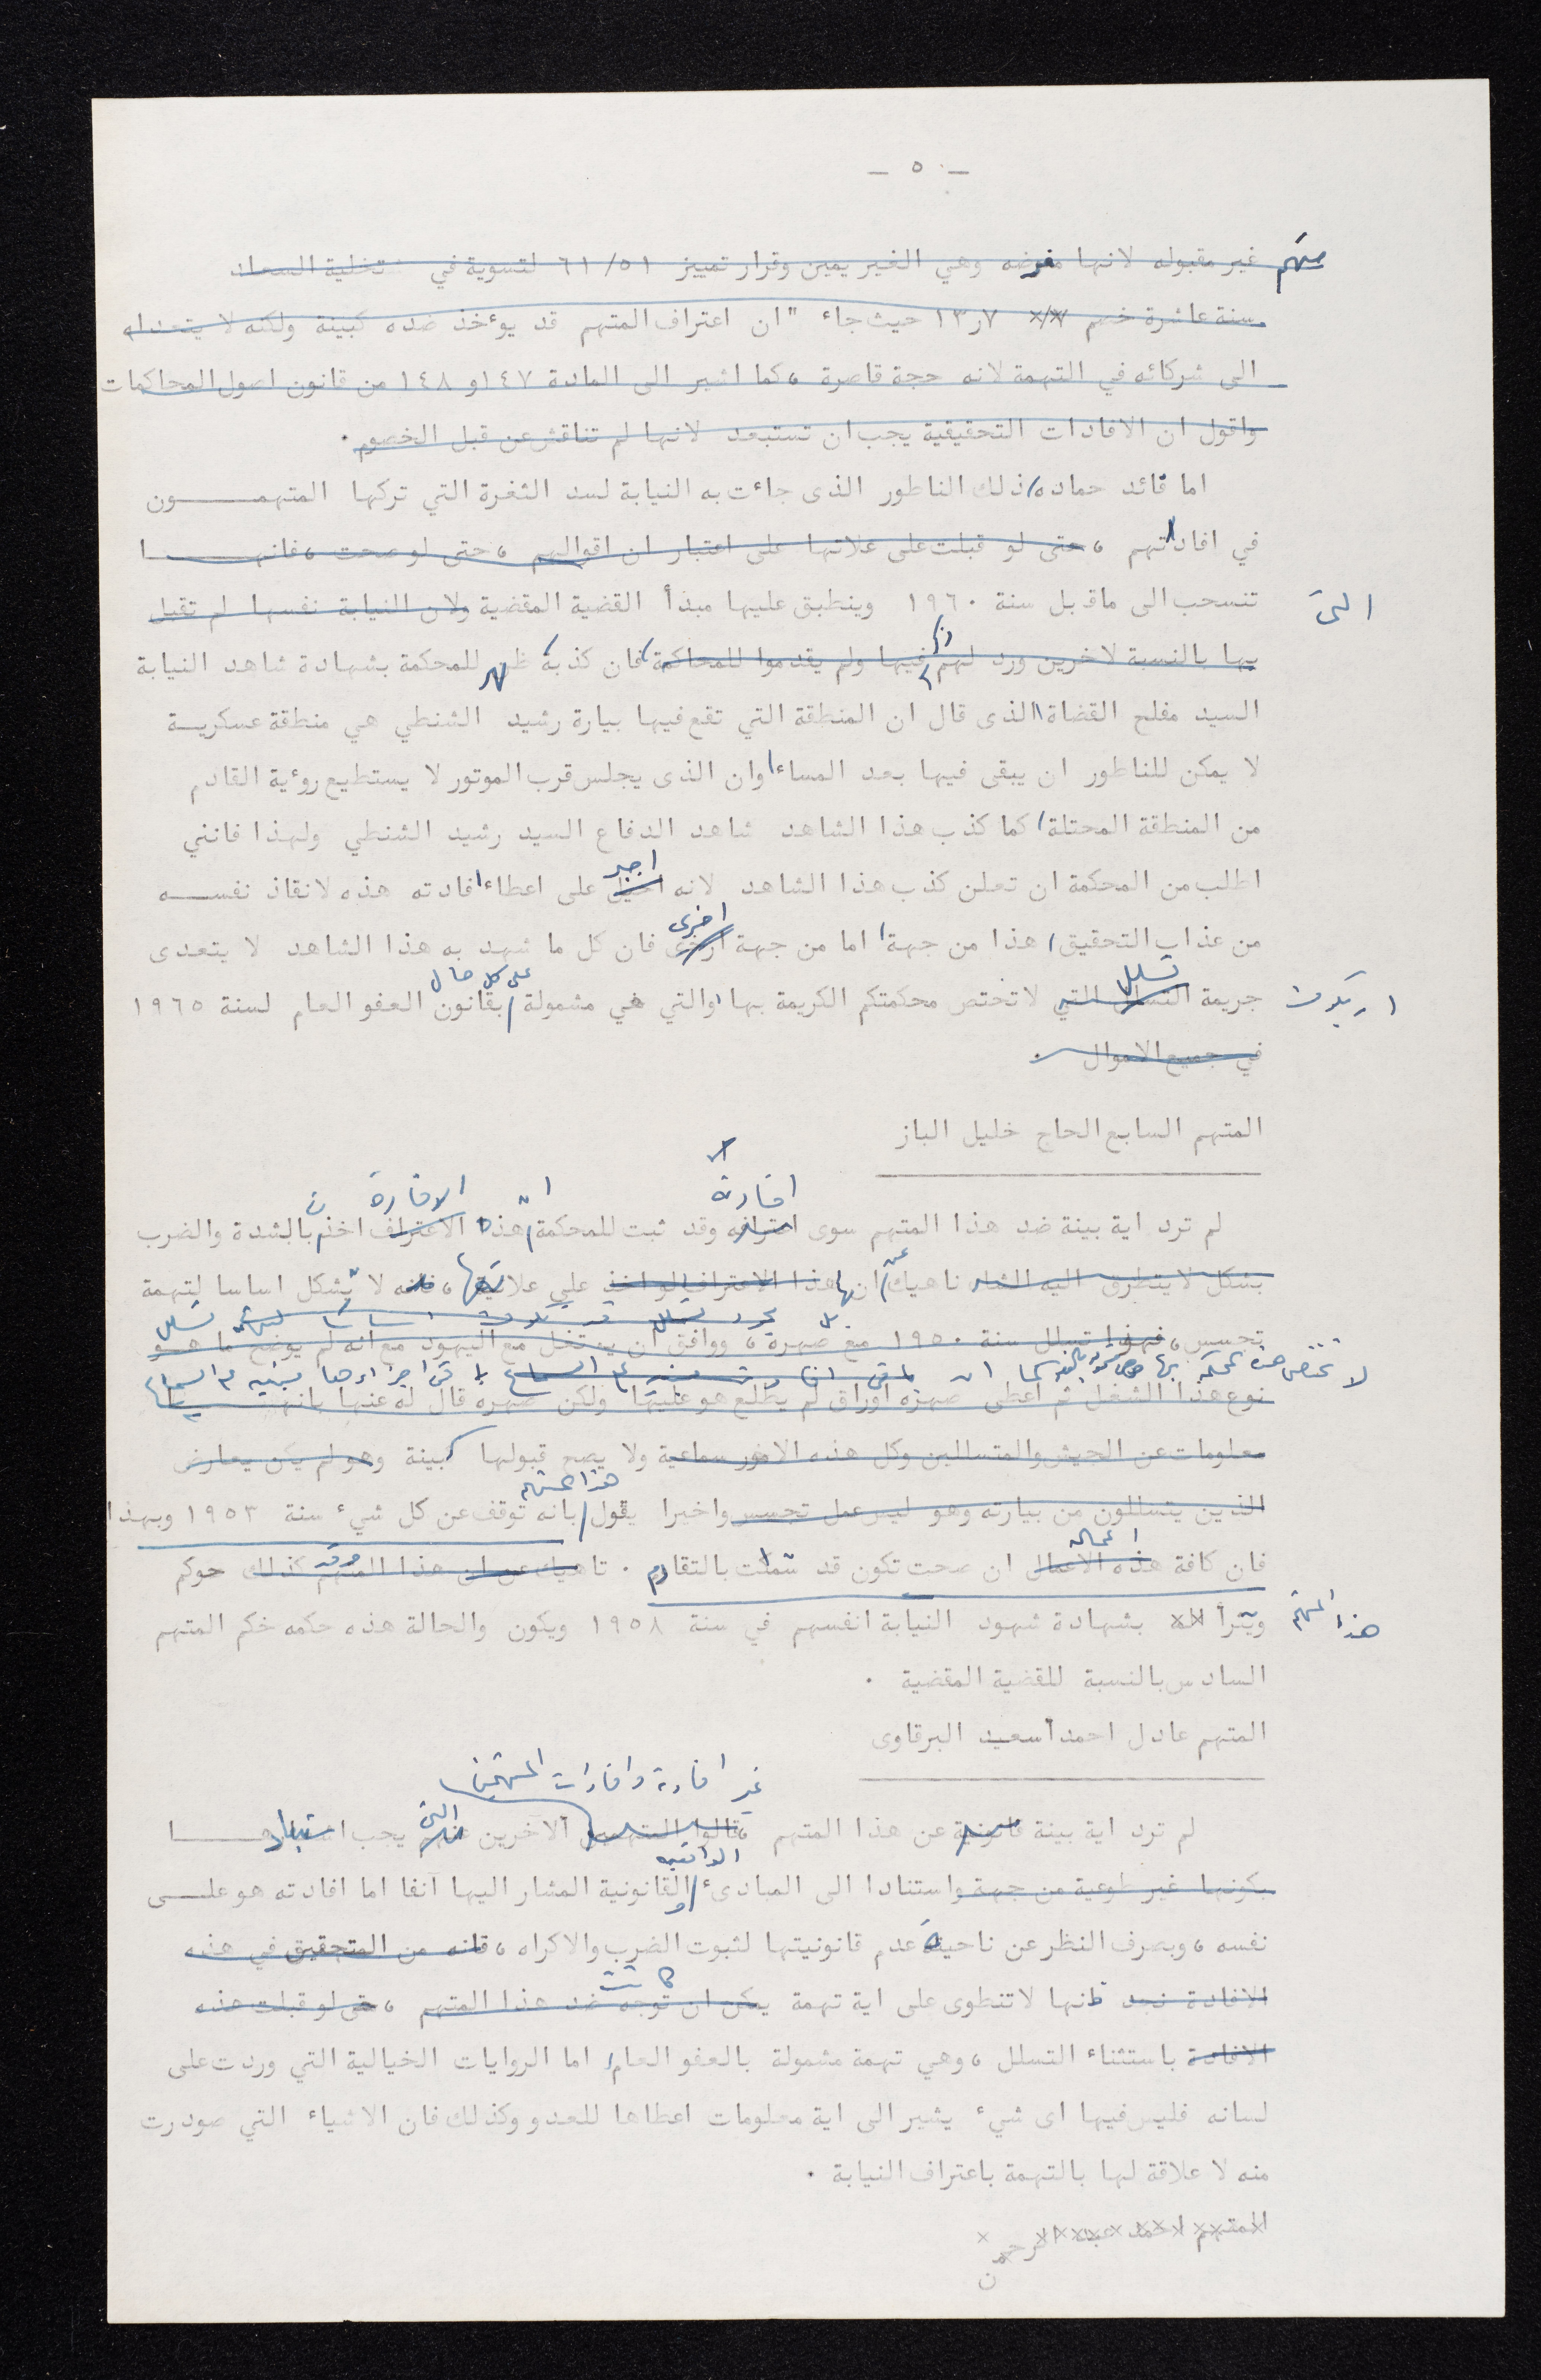 - ٥ -
متهم غير مقبوله لانها مغرضه وهي الغير يمين وقرار تمييز ٦١/٥١ لتسوية في تخلية السعاد
سنة عاشرة خصم ٧ر١٣ حيث جاء " ان اعتراف المتهم قد يوءخذ ضده كبينة ولكنه لا يتعداه
الى شركائه في التهمة لانه حجة قاصرة ، كما اشير الى المادة ١٤٧و ١٤٨ من قانون اصول المحاكمات
واقول ان الافادات التحقيقية يجب ان تستبعد لانها لم تناقش عن قبل الخصوم .
اما قائد حماده ذلك الناطور الذى جاءت به النيابة لسد الثغرة التي تركها المتهمون
في افاداتهم ، حتى لو قبلت على علاتها على اعتبار ان اقوالهم ، حتى لو صحت ، فانها
التي تنسحب الى ماقبل سنة ١٩٦٠ وينطبق عليها مبدأ القضية المقضية ولان النيابة نفسها لم تقبل
بها بالنسبة لاخرين ورد لهم فيها ولم يقدموا للمحاكمة فان كذبه ظهر للمحكمة بشهادة شاهد النيابة
السيد مفلح القضاة الذى قال ان المنطقة التي تقع فيها بيارة رشيد الشنطي هي منطقة عسكرية
لا يمكن للناطور ان يبقى فيها بعد المساء وان الذى يجلس قرب الموتور لا يستطيع روءية القادم
من المنطقة المحتلة كما كذب هذا الشاهد شاهد الدفاع السيد رشيد الشنطي ولهذا فانني
اجبر
اطلب من المحكمة ان تعلن كذب هذا الشاهد لانه على اعطاء افادته هذه لانقاذ نفسه
اخرى
من عذاب التحقيق هذا من جهة اما من جهة ارخى فان كل ما شهد به هذا الشاهد لا يتعدى
تسلل على كل حال
جريمة التسلل التي لا تختص محكمتكم الكريمة بها والتي هي مشمولة بقانون العفو العام لسنة ١٩٦٥
في جميع الاموال .
المتهم السابع الحاج خليل الباز
افادته ان الافادة
لم ترد اية بينة ضد هذا المتهم سوى اعترافه وقد ثبت للمحكمة هذا الاعتراف اخذ بالشدة والضرب
بشكل لا يتطرق اليه الشك ناهيك عن انها هذا الاعتراف لو اخذ على علاتها ، فانه لا تشكل اساسا لتهمة
تجسس ، فهو تسلل سنة ١٩٥٠ مع صهرة ، ووافق ان يشتغل مع اليهود مع انه لم يوضح ما هو
نوع هذا الشغل ثم اعطى صهره اوراق لم يطلع هو عليها ولكن صهره قال له عنها بانها
معلومات عن الجيش والمتسللين وكل هذه الامور سماعية ولا يصح قبولها كبينة وهو لم يكن يعارض
هذا المتهم
الذين يتسللون من بيارته وهو ليس عمل تجسس واخيرا يقول بانه توقف عن كل شيء سنة ١٩٥٣ وبهذا
اعماله
فان كافة هذه الاعمال ان صحت تكون قد شملت بالتقادم . تاهيك عن ان هذا المتهم كذلك حوكم
هذا المتهم وتبرأ بشهادة شهود النيابة انفسهم في سنة ١٩٥٨ ويكون والحالة هذه حكمه حكم المتهم
السادس بالنسبة للقضية المقضية .
المتهم عادل احمد أسعيد البرقاوى
غير افادته وافادات المتهمين
لم ترد اية بينة قانونية عن هذا المتهم ، قالوا المتهمين الآخرين التي يجب استبعادها
الواقعية
بكونها غير طوعية من جهة واستنادا الى المبادىء والقانونية المشار اليها آنفا اما افادته هو على
نفسه ، وبصرف النظر عن ناحية عدم قانونيتها لثبوت الضرب والاكراه ، فانه من التحقيق في هذه
الافادة نجد انها لا تنطوى على اية تهمة يمكن ان توجه ضد هذا المتهم ، حتى لو قبلت هذه
الافادة باستثناء التسلل ، وهي تهمة مشمولة بالعفو العام اما الروايات الخيالية التي وردت على
لسانه فليس فيها اى شيء يشير الى اية معلومات اعطاها للعدو وكذلك فان الاشياء التي صودرت
منه لا علاقة لها بالتهمة باعتراف النيابة .
المتهم احمد عبد الرحمن